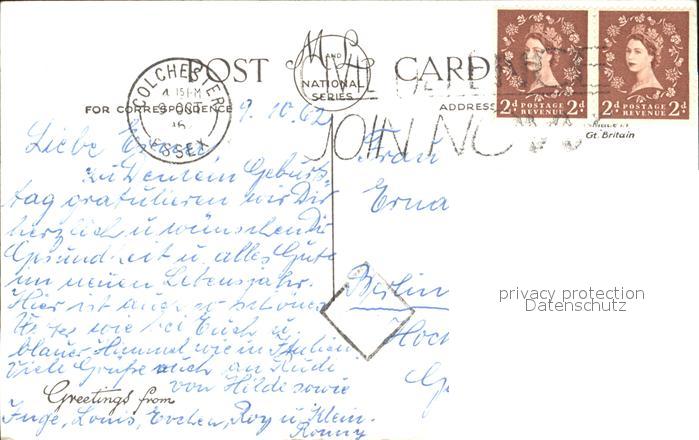 POST CARD
M AND L
NATIONAL
SERIES
COLCHESTER
4 15 PM
9 OCT
ESSEX
JOIN NOW
2d POSTAGE REVENUE 2d
2d POSTAGE REVENUE 2d
FOR CORRESPONDENCE
ADDRESS
Gt. Britain
9.10.62
Liebe Erna!
Zu Deinem Geburts-
tag gratulieren wir Dir
herzlich u. wünschen Dir
Gesundheit u. alles Gute
im neuen Lebensjahr.
Hier ist auch so schönes
wie bei Euch u.
blauer Himmel wie in Italien
Viele Grüße auch an Rudi
von Hilde sowie
Greetings from
Inge, Louis, Evchen, Roy u. klein-
Ronny
Frau
Erna
Berlin
Hoch
privacy protection
Datenschutz